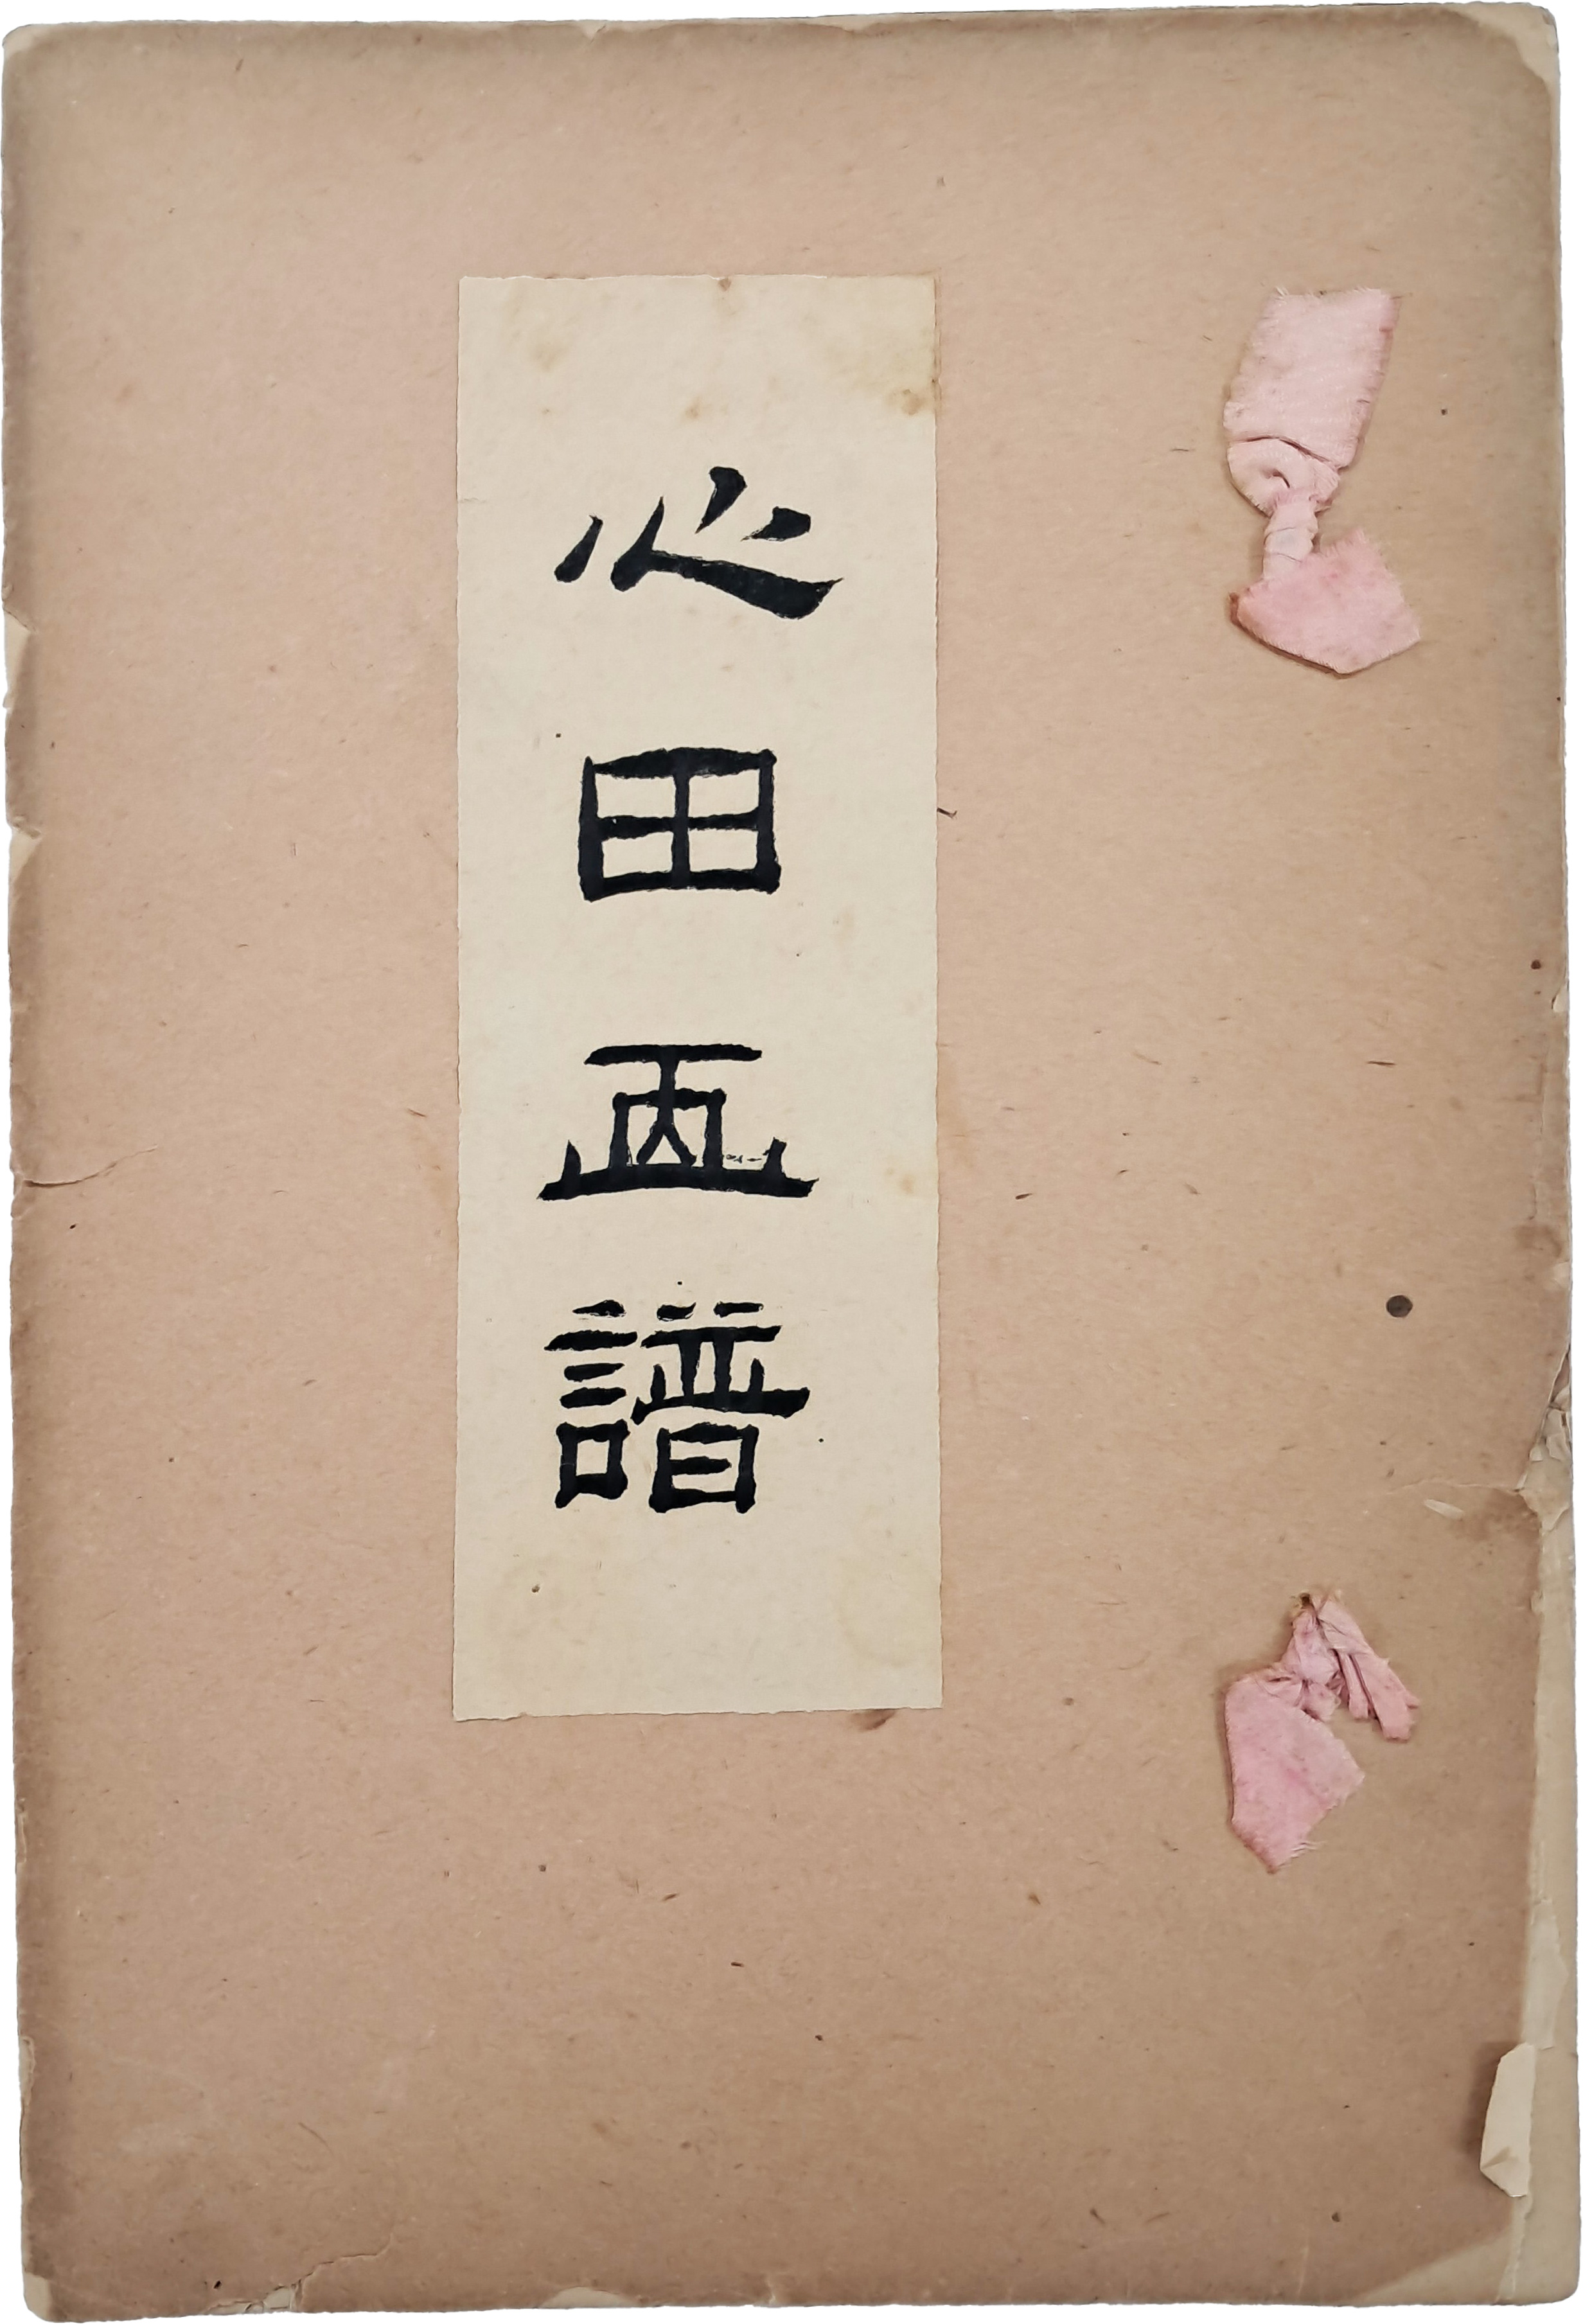 心田画譜